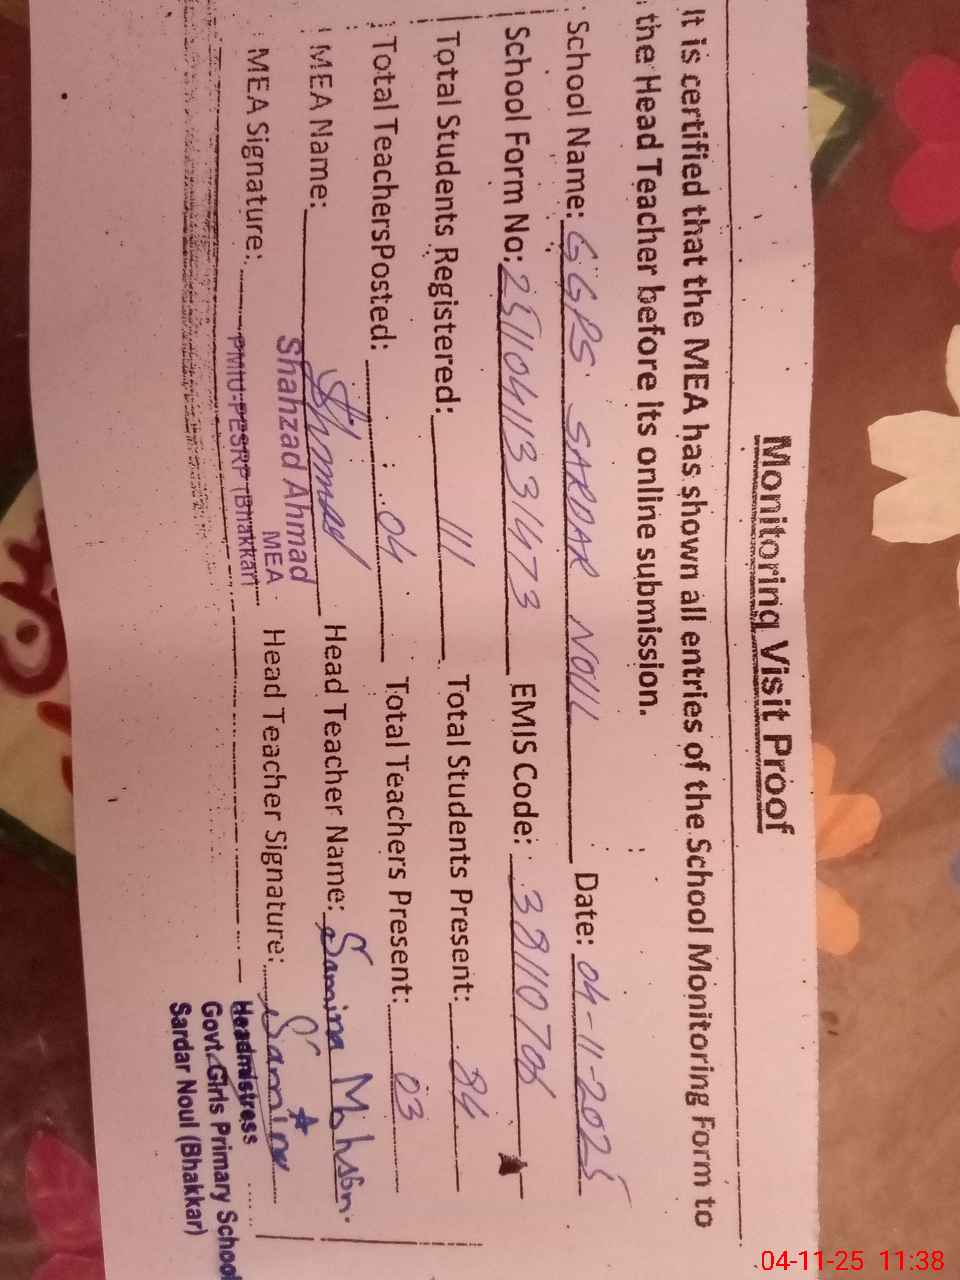 Monitoring Visit Proof
It is certified that the MEA has shown all entries of the School Monitoring Form to
the Head Teacher before its online submission.
School Name: GGPS SARDAR NOUL Date: 04-11-2025
School Form No: EMIS Code:
Total Students Registered: 111 Total Students Present: 84
Total TeachersPosted: 04 Total Teachers Present: 03
MEA Name: Head Teacher Name: Samina Mohsin.
MEA Signature: Head Teacher Signature: Samina
Shahzad Ahmad
MEA
PMIU-PESRP (Bhakkar)
Headmistress
Govt. Girls Primary School
Sardar Noul (Bhakkar)
04-11-25 11:38